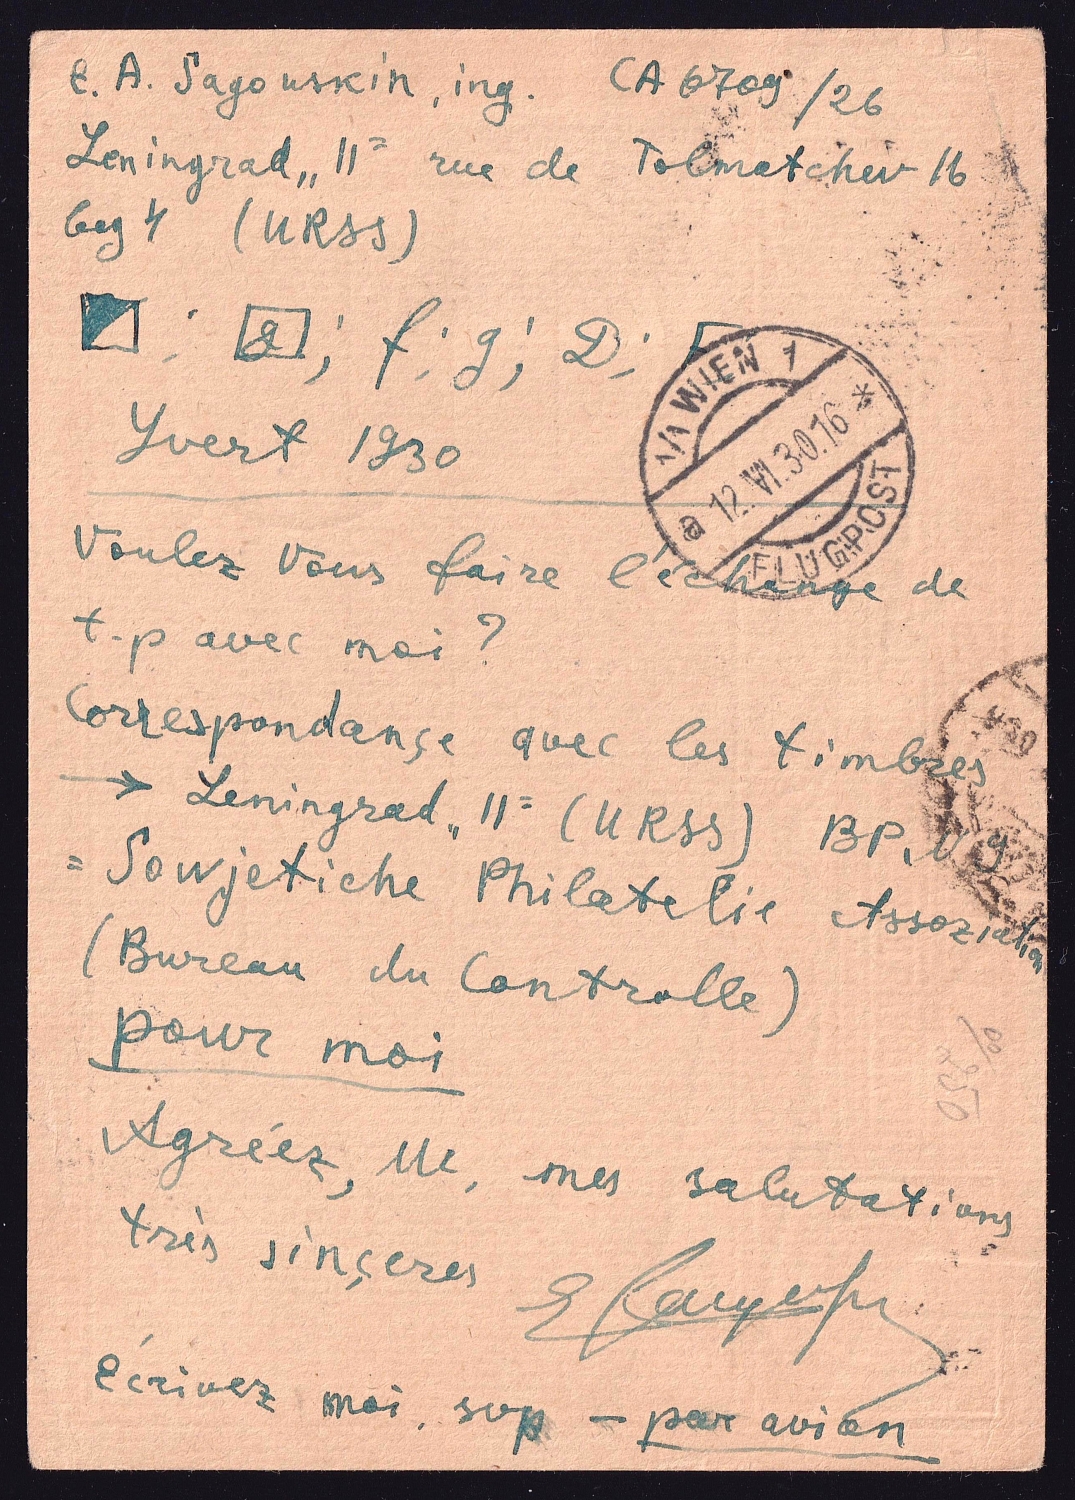 E. A. Sagouskin, ing. CA 6709/26
Leningrad „11" rue de Tolmatchev 16
log 4 (URSS)
a ; f ; g ; D ;
Yvert 1930
Voulez vous faire l'échange de
t-p avec moi ?
Correspondançe avec les timbres
→ Leningrad „11" (URSS) BP,
= Sowjetiche Philatelie Assoziation
(Bureau du Controlle)
pour moi
Agréez, Mr, mes salutations
très sinçeres
Écrivez moi, svp – par avion
1/1 WIEN 1 *
a 12.VI.30.16
FLUGPOST